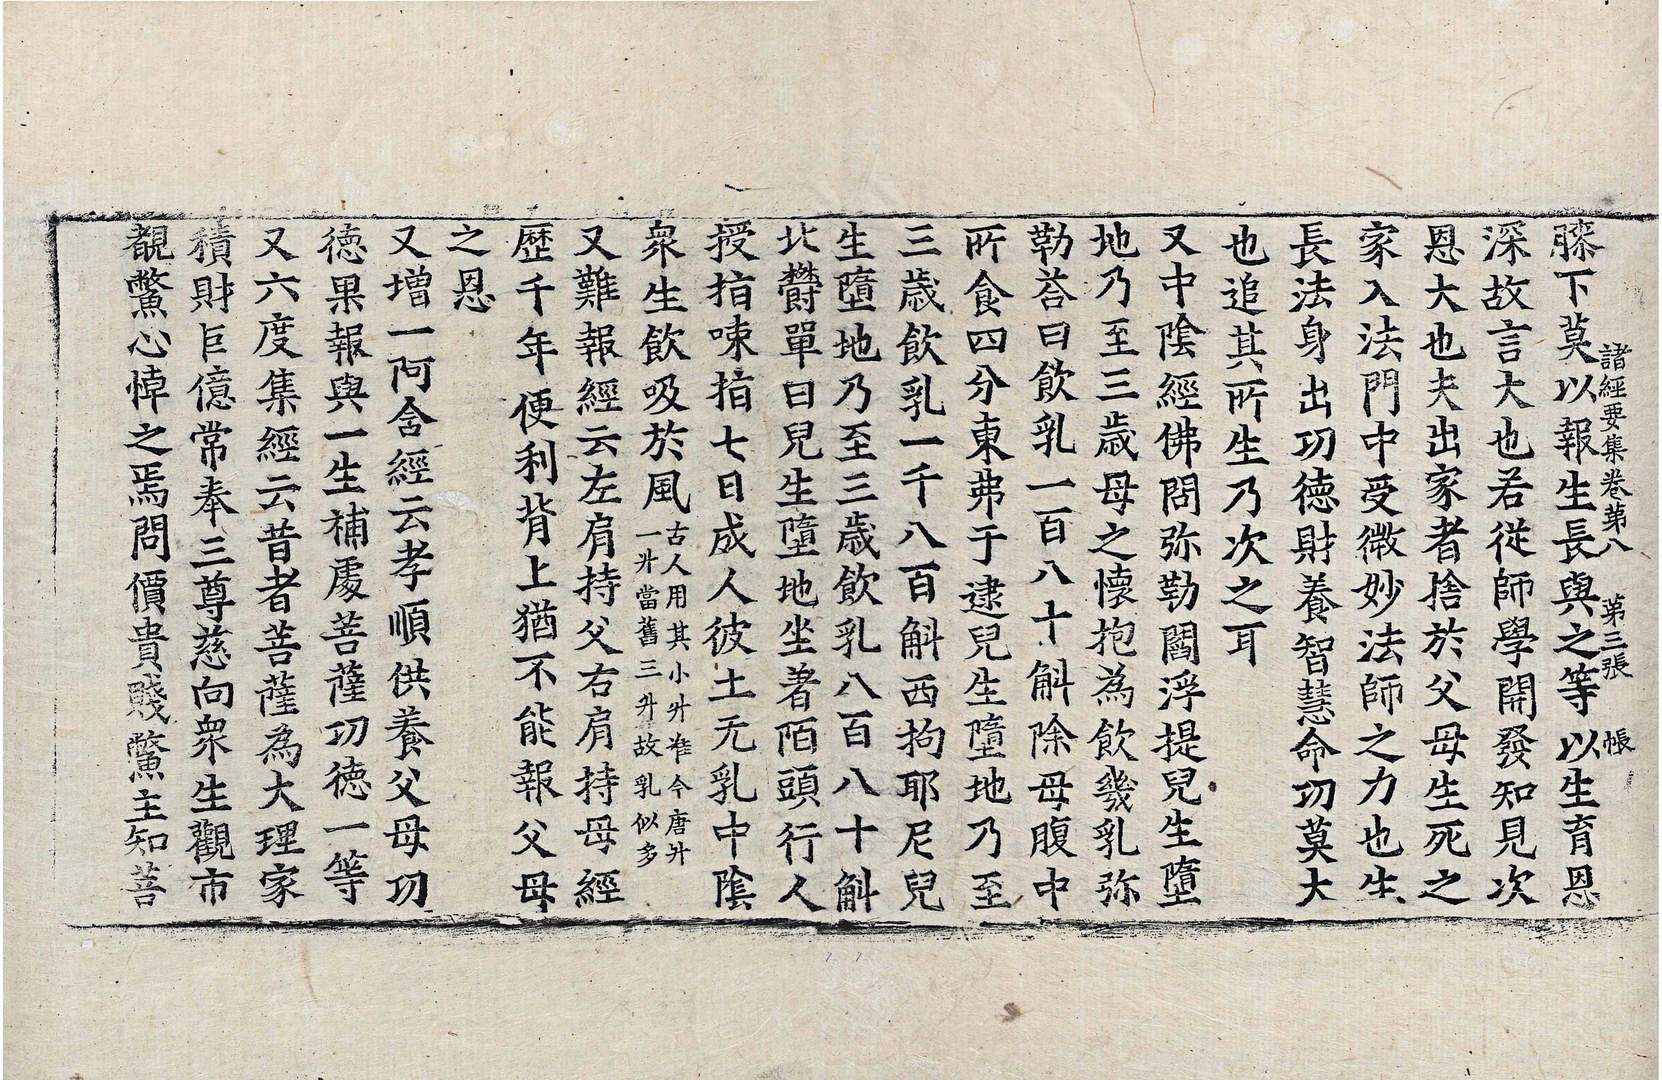 諸經要集卷第八　第三張　帳
膝下莫以報生長與之等以生育恩
深故言大也若從師學開發知見次
恩大也夫出家者捨於父母生死之
家入法門中受微妙法師之力也生
長法身出功德財養智慧命功莫大
也追其所生乃次之耳
又中陰經佛問弥勒閻浮提兒生墮
地乃至三歲母之懷抱為飲幾乳弥
勒荅曰飲乳一百八十斛除母腹中
所食四分東弗于逮兒生墮地乃至
三歲飲乳一千八百斛西拘耶尼兒
生墮地乃至三歲飲乳八百八十斛
北欝單曰兒生墮地坐著陌頭行人
授指𠲿指七日成人彼土无乳中陰
衆生飲吸於風
古人用其小升准今唐升
一升當舊三升故乳似多
又難報經云左肩持父右肩持母經
歷千年便利背上猶不能報父母
之恩
又增一阿含經云孝順供養父母功
德果報與一生補處菩薩功德一等
又六度集經云昔者菩薩為大理家
積財巨億常奉三尊慈向衆生觀市
覩鱉心悼之焉問價貴賤鱉主知菩